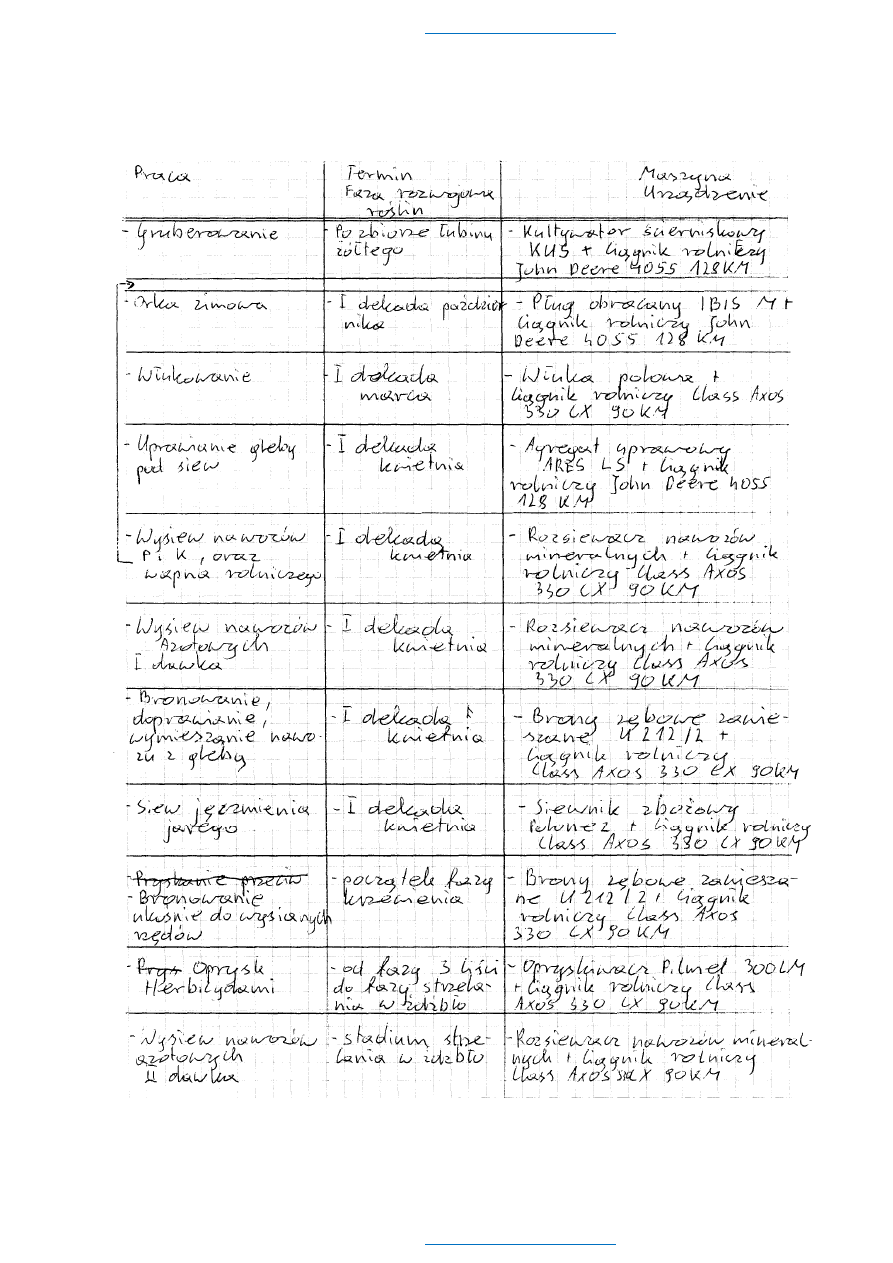 Praca
Termin
Faza rozwojowa
roślin
Maszyna
Urządzenie
- Gruberowanie
- Po zbiorze łubinu
żółtego
- Kultywator ścierniskowy
KUS + Ciągnik rolniczy
John Deere 4055 128 KM
- Orka zimowa
- I dekada paździer
nika
- Pług obracany IBIS M +
Ciągnik rolniczy John
Deere 4055 128 KM
- Włukowanie
- I dekada
marca
- Włuka polowa +
Ciągnik rolniczy Class Axos
330 CX 90 KM
- Uprawianie gleby
pod siew
- I dekada
kwietnia
- Agregat uprawowy
ARES LS + Ciągnik
rolniczy John Deere 4055
128 KM
- Wysiew nawozów
P i K, oraz
wapna rolniczego
- I dekada
kwietnia
- Rozsiewacz nawozów
mineralnych + Ciągnik
rolniczy Class Axos
330 CX 90 KM
- Wysiew nawozów
Azotowych
I dawka
- I dekada
kwietnia
- Rozsiewacz nawozów
mineralnych + Ciągnik
rolniczy Class Axos
330 CX 90 KM
- Bronowanie,
doprawianie,
wymieszanie nawo-
zu z glebą
- I dekada
kwietnia
- Brony zębowe zawie-
szane U 212/2 +
Ciągnik rolniczy
Class Axos 330 CX 90 KM
- Siew jęczmienia
jarego
- I dekada
kwietnia
- Siewnik zbożowy
+ Ciągnik rolniczy
Class Axos 330 CX 90 KM
- Pryskanie przeciw
- Bronowanie
ukośnie do wysianych
rzędów
- początek fazy
krzewienia
- Brony zębowe zawiesza-
ne U 212/2 + Ciągnik
rolniczy Class Axos
330 CX 90 KM
- Prys Oprysk
Herbicydami
- od fazy 3 liści
do fazy strzela-
nia w źdźbło
- Opryskiwacz Pilmet 300 LM
+ Ciągnik rolniczy Class
Axos 330 CX 90 KM
- Wysiew nawozów
azotowych
II dawka
- stadium strze-
lania w źdźbło
- Rozsiewacz nawozów mineral-
nych + Ciągnik rolniczy
Class Axos CX 90 KM